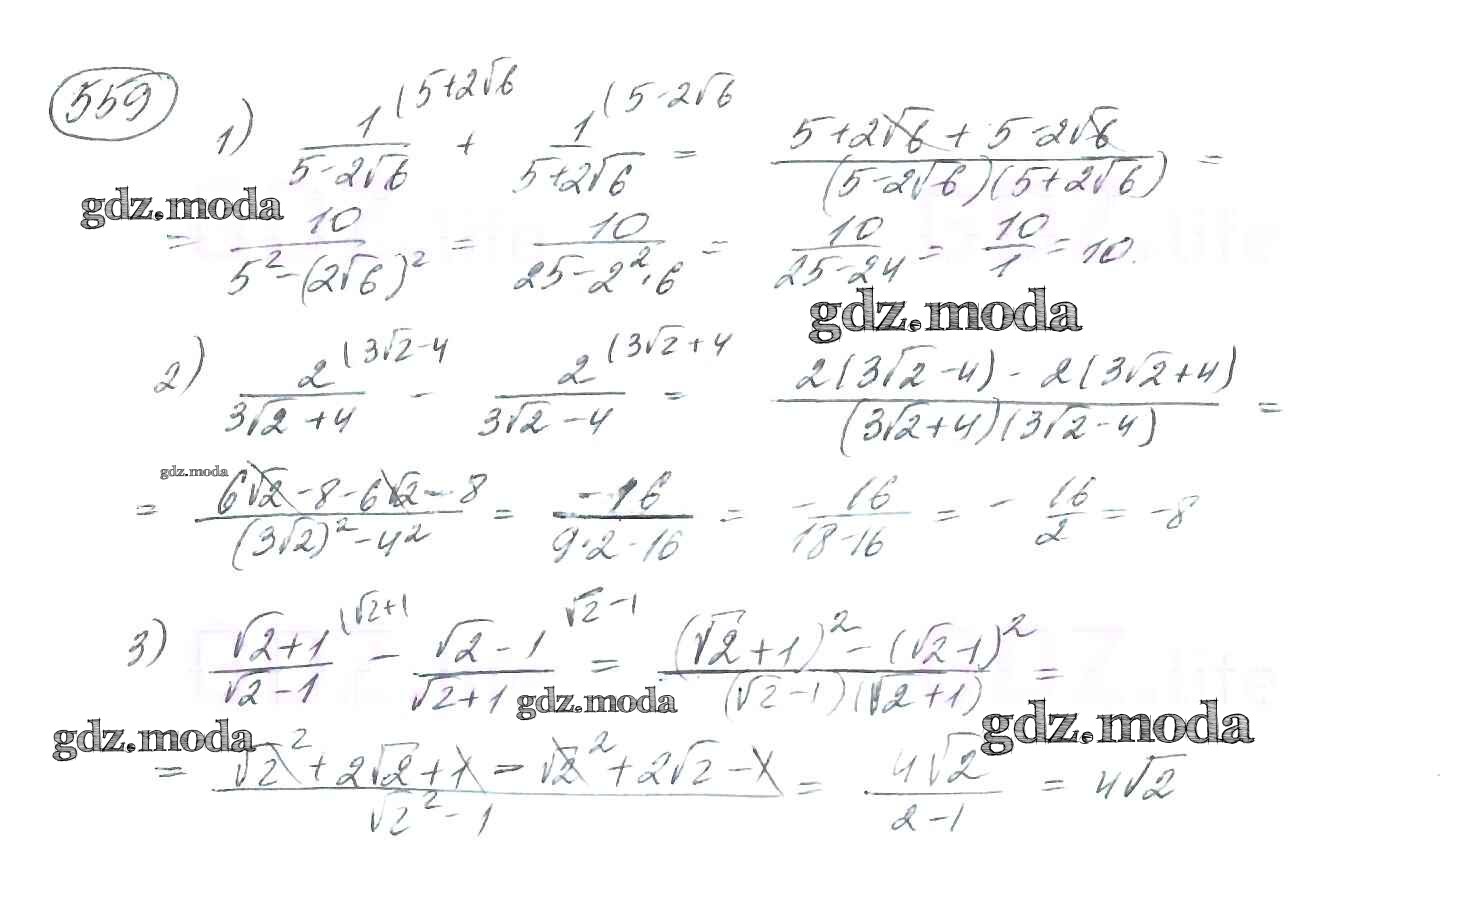 559
1) 1/(5-2√6) (5+2√6 + 1/(5+2√6) (5-2√6 = (5+2√6 + 5-2√6)/((5-2√6)(5+2√6)) =
gdz.moda
= 10/(5²-(2√6)²) = 10/(25-2²·6) = 10/(25-24) = 10/1 = 10.
gdz.moda
2) 2/(3√2+4) (3√2-4 - 2/(3√2-4) (3√2+4 = (2(3√2-4) - 2(3√2+4))/((3√2+4)(3√2-4)) =
gdz.moda
= (6√2-8-6√2-8)/((3√2)²-4²) = -16/(9·2-16) = -16/(18-16) = -16/2 = -8
3) (√2+1)/(√2-1) (√2+1 - (√2-1)/(√2+1) √2-1 = ((√2+1)²-(√2-1)²)/((√2-1)(√2+1)) =
gdz.moda
gdz.moda
gdz.moda
= (√2²+2√2+1-√2²+2√2-1)/(√2²-1) = 4√2/(2-1) = 4√2